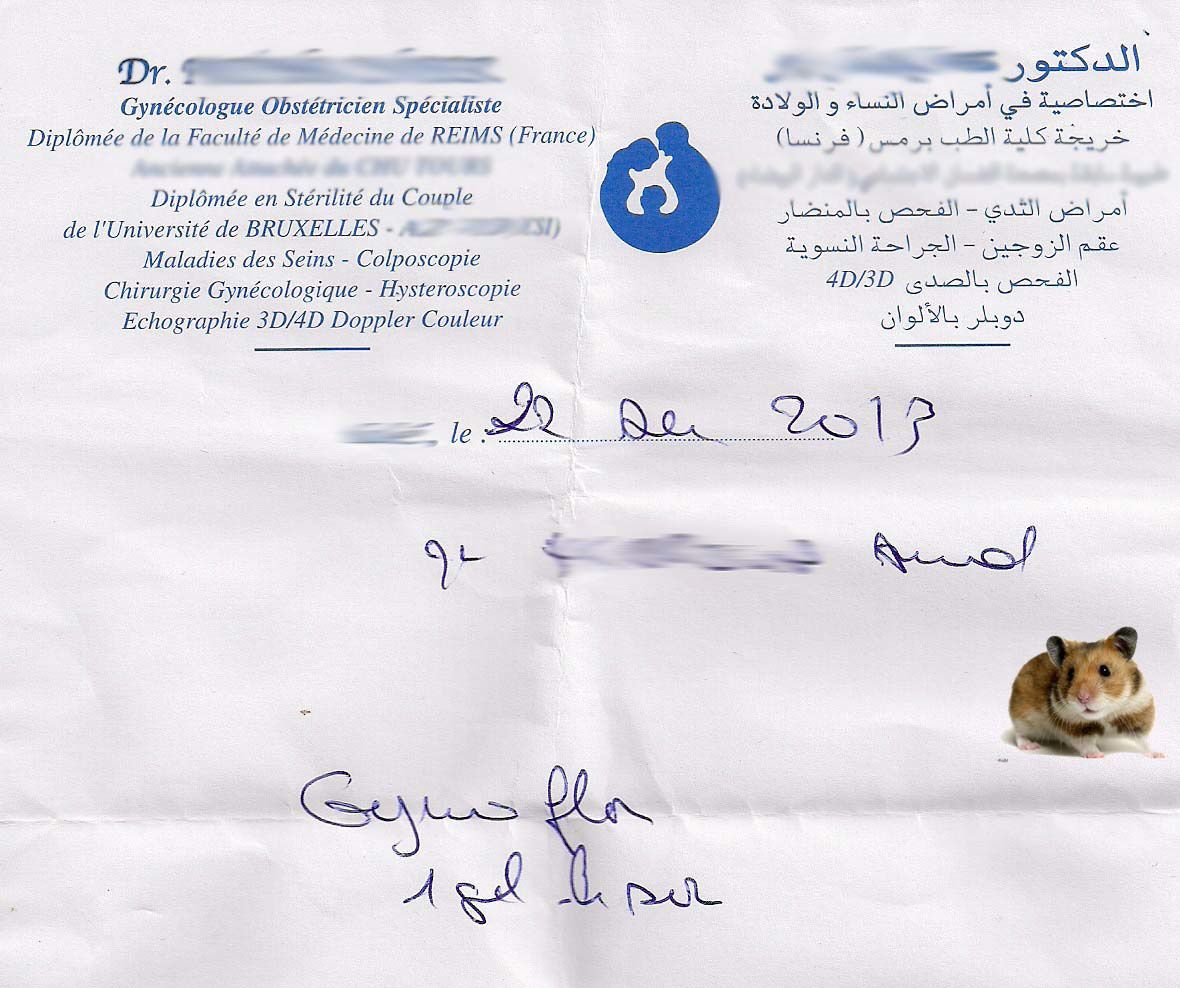 Dr.
Gynécologue Obstétricien Spécialiste
Diplômée de la Faculté de Médecine de REIMS (France)
Ancienne Attachée du CHU TOURS
Diplômée en Stérilité du Couple
de l'Université de BRUXELLES -
Maladies des Seins - Colposcopie
Chirurgie Gynécologique - Hysteroscopie
Echographie 3D/4D Doppler Couleur
الدكتور
اختصاصية في أمراض النساء و الولادة
خريجة كلية الطب برمس (فرنسا)
أمراض الثدي - الفحص بالمنضار
عقم الزوجين - الجراحة النسوية
الفحص بالصدى 4D/3D
دوبلر بالألوان
le : 22 2013
Gynoflor
1 gel le soir